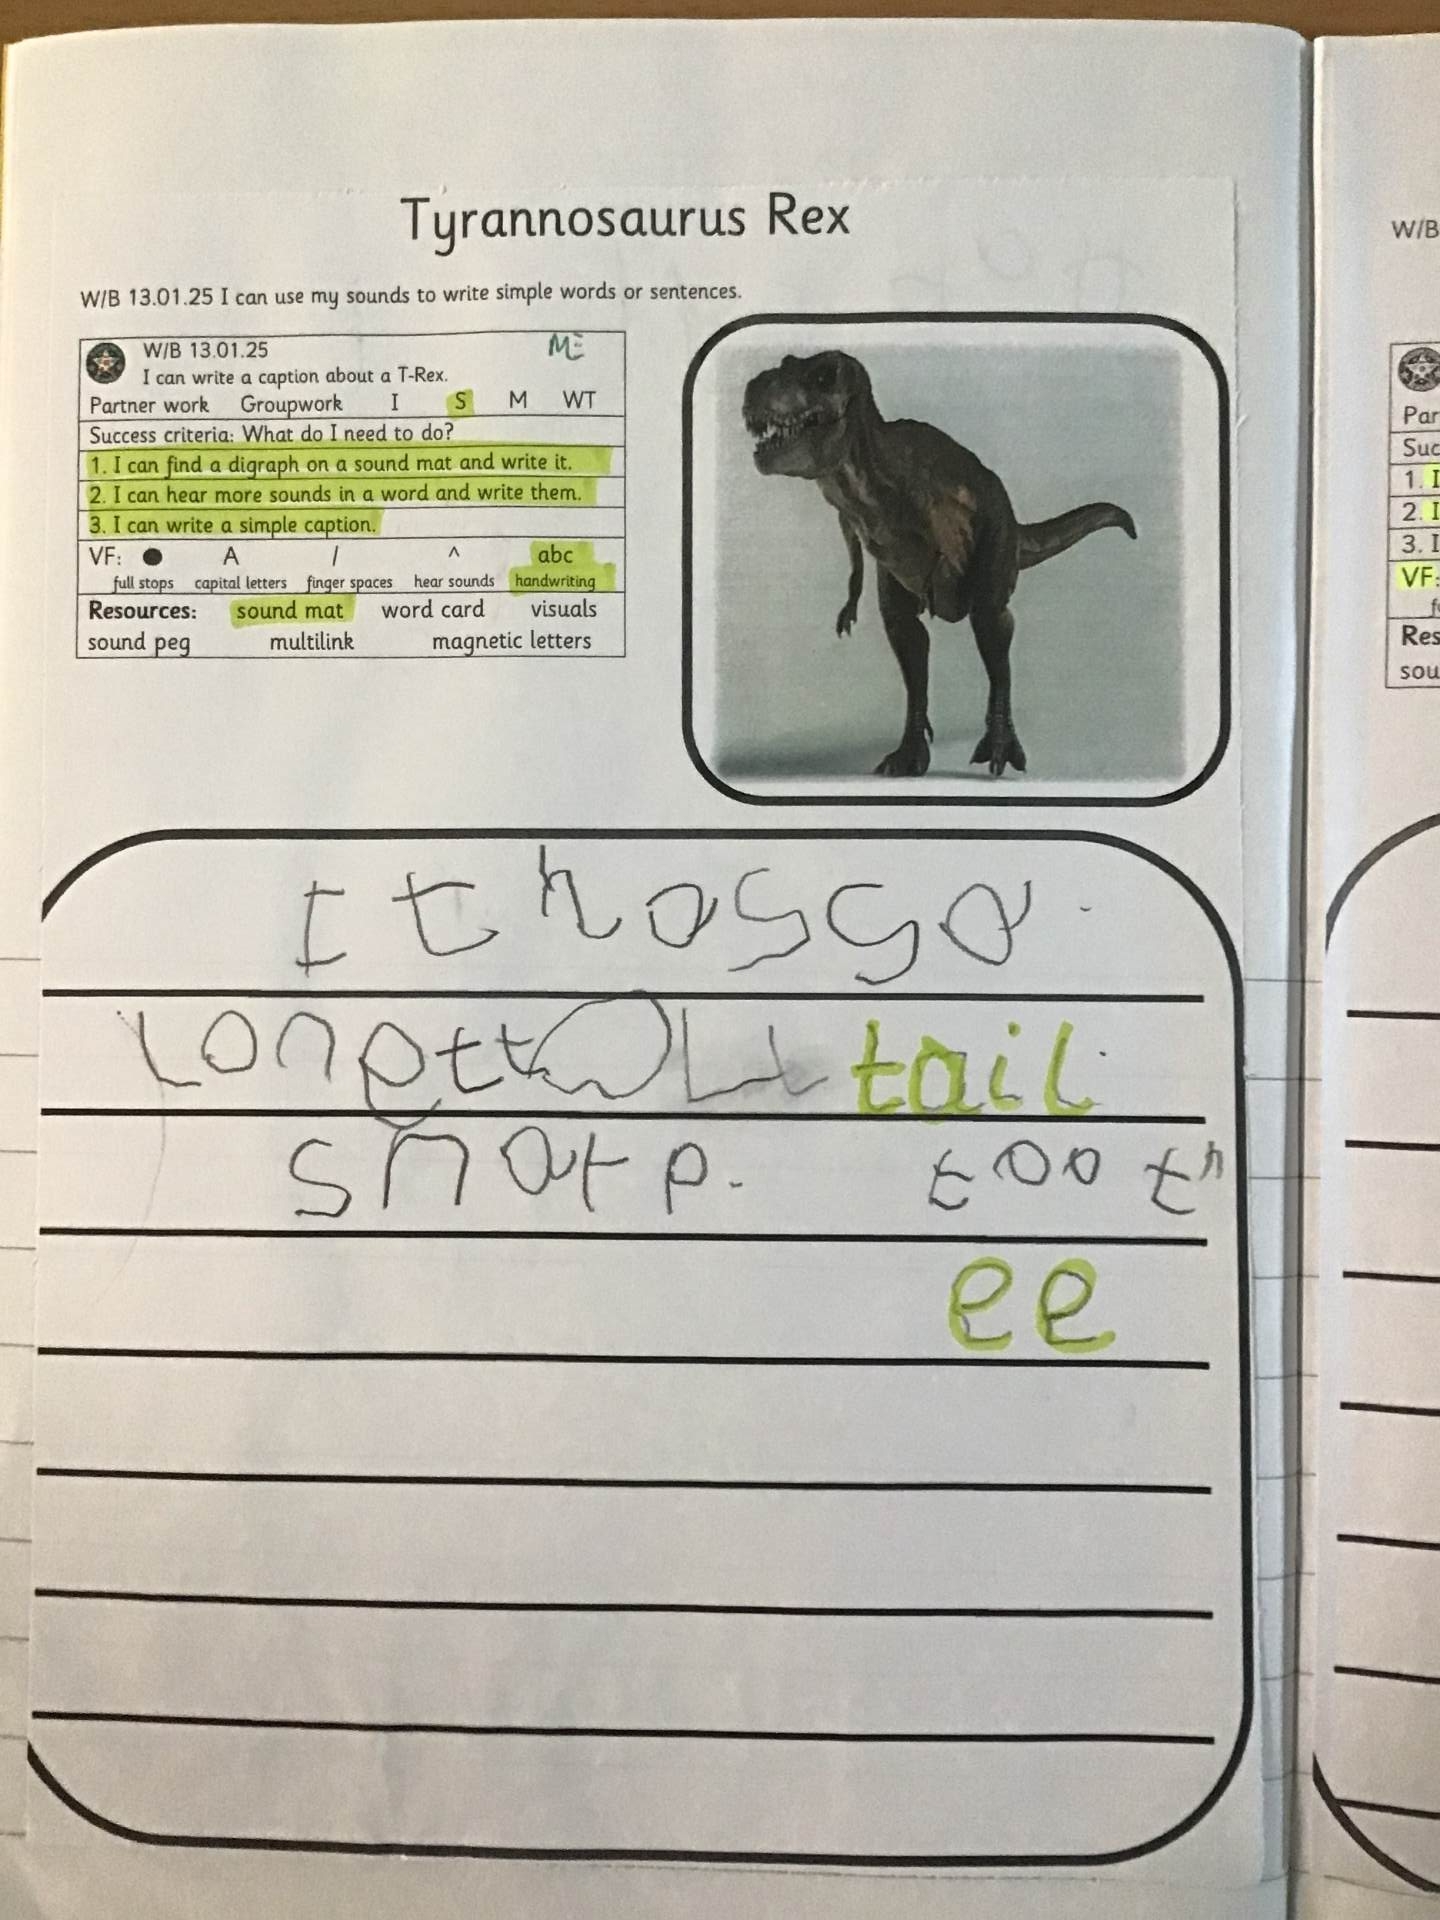 Tyrannosaurus Rex
W/B 13.01.25 I can use my sounds to write simple words or sentences.
W/B 13.01.25 ME
I can write a caption about a T-Rex.
Partner work Groupwork I S M WT
Success criteria: What do I need to do?
1. I can find a digraph on a sound mat and write it.
2. I can hear more sounds in a word and write them.
3. I can write a simple caption.
VF: ● A / ^ abc
full stops capital letters finger spaces hear sounds handwriting
Resources: sound mat word card visuals
sound peg multilink magnetic letters
It has sa
tail
sharp. tooth
ee
W/B
Par
Suc
1. I
2. I
3. I
VF:
Res
sou